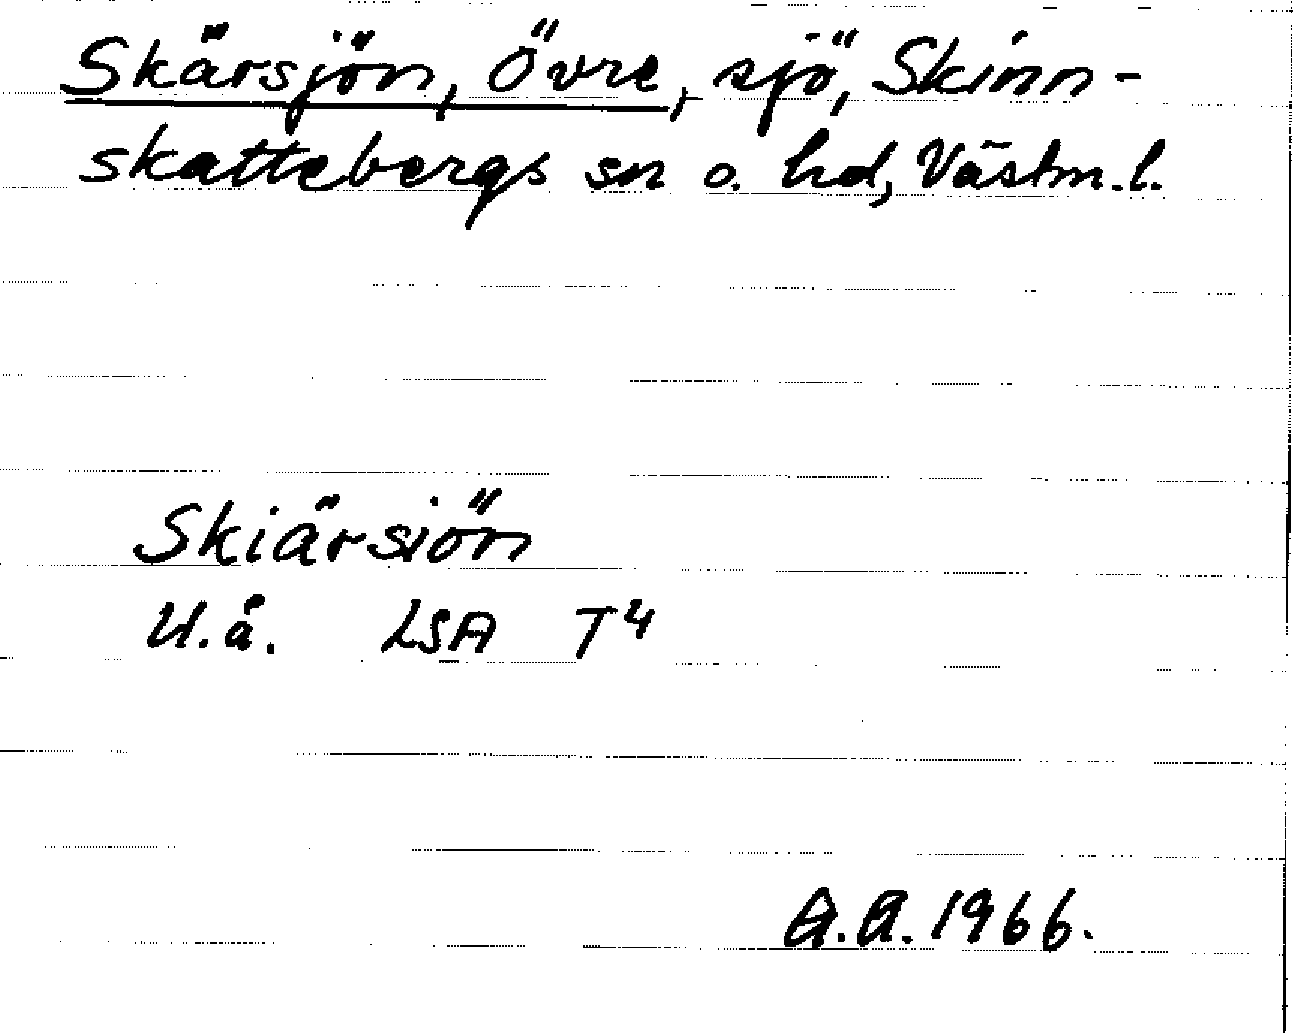 Skärsjön, Övre, sjö, Skinn-
skattebergs sn o. hd, Västm. l.
Skiärsiön
U.å. LSA T4
A.A. 1966.